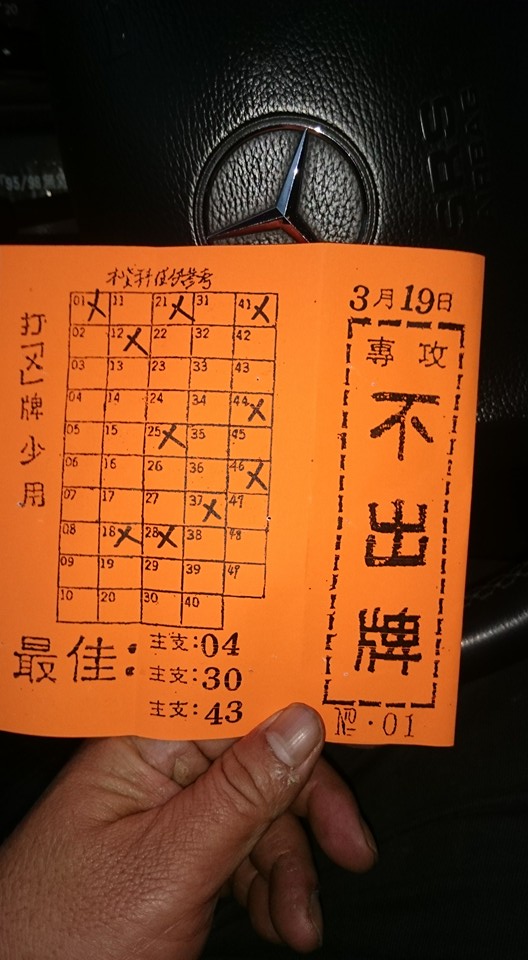 本資料僅供參考
打「X」牌少用
01 X 11 21 X 31 41 X
02 12 X 22 32 42
03 13 23 33 43
04 14 24 34 44 X
05 15 25 X 35 45
06 16 26 36 46 X
07 17 27 37 X 47
08 18 X 28 X 38 48
09 19 29 39 49
10 20 30 40
最佳:
主支:04
主支:30
主支:43
3月19日
專攻
不出牌
№.01
SRS